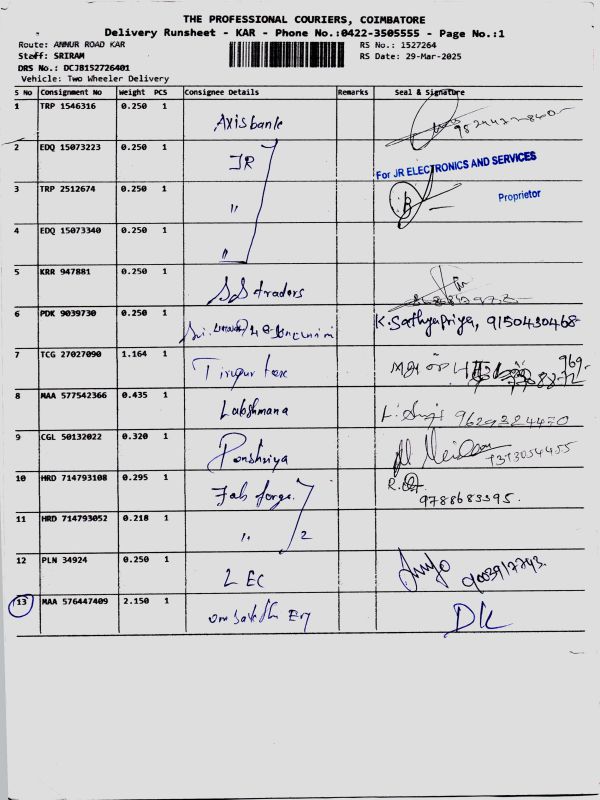 THE PROFESSIONAL COURIERS, COIMBATORE
Delivery Runsheet - KAR - Phone No.:0422-3505555 - Page No.:1
Route: ANNUR ROAD KAR
RS No.: 1527264
Staff: SRIRAM
RS Date: 29-Mar-2025
DRS No.: DCJB152726401
Vehicle: Two Wheeler Delivery
S No Consignment No Weight PCS Consignee Details Remarks Seal & Signature
1 TRP 1546316 0.250 1 Axisbank
2 EDQ 15073223 0.250 1 JR
For JR ELECTRONICS AND SERVICES
3 TRP 2512674 0.250 1 "
Proprietor
4 EDQ 15073340 0.250 1 "
5 KRR 947881 0.250 1 SS traders
6 PDK 9039730 0.250 1 K.Sathyapriya, 9150430468
7 TCG 27027090 1.164 1 Tirupur
8 MAA 577542366 0.435 1 Lakshmana 9629324470
9 CGL 50132022 0.320 1 7373054455
10 HRD 714793108 0.295 1 Fab forge 9788683395
11 HRD 714793052 0.218 1 " 2
12 PLN 34924 0.250 1 LEC
13 MAA 576447409 2.150 1 DK